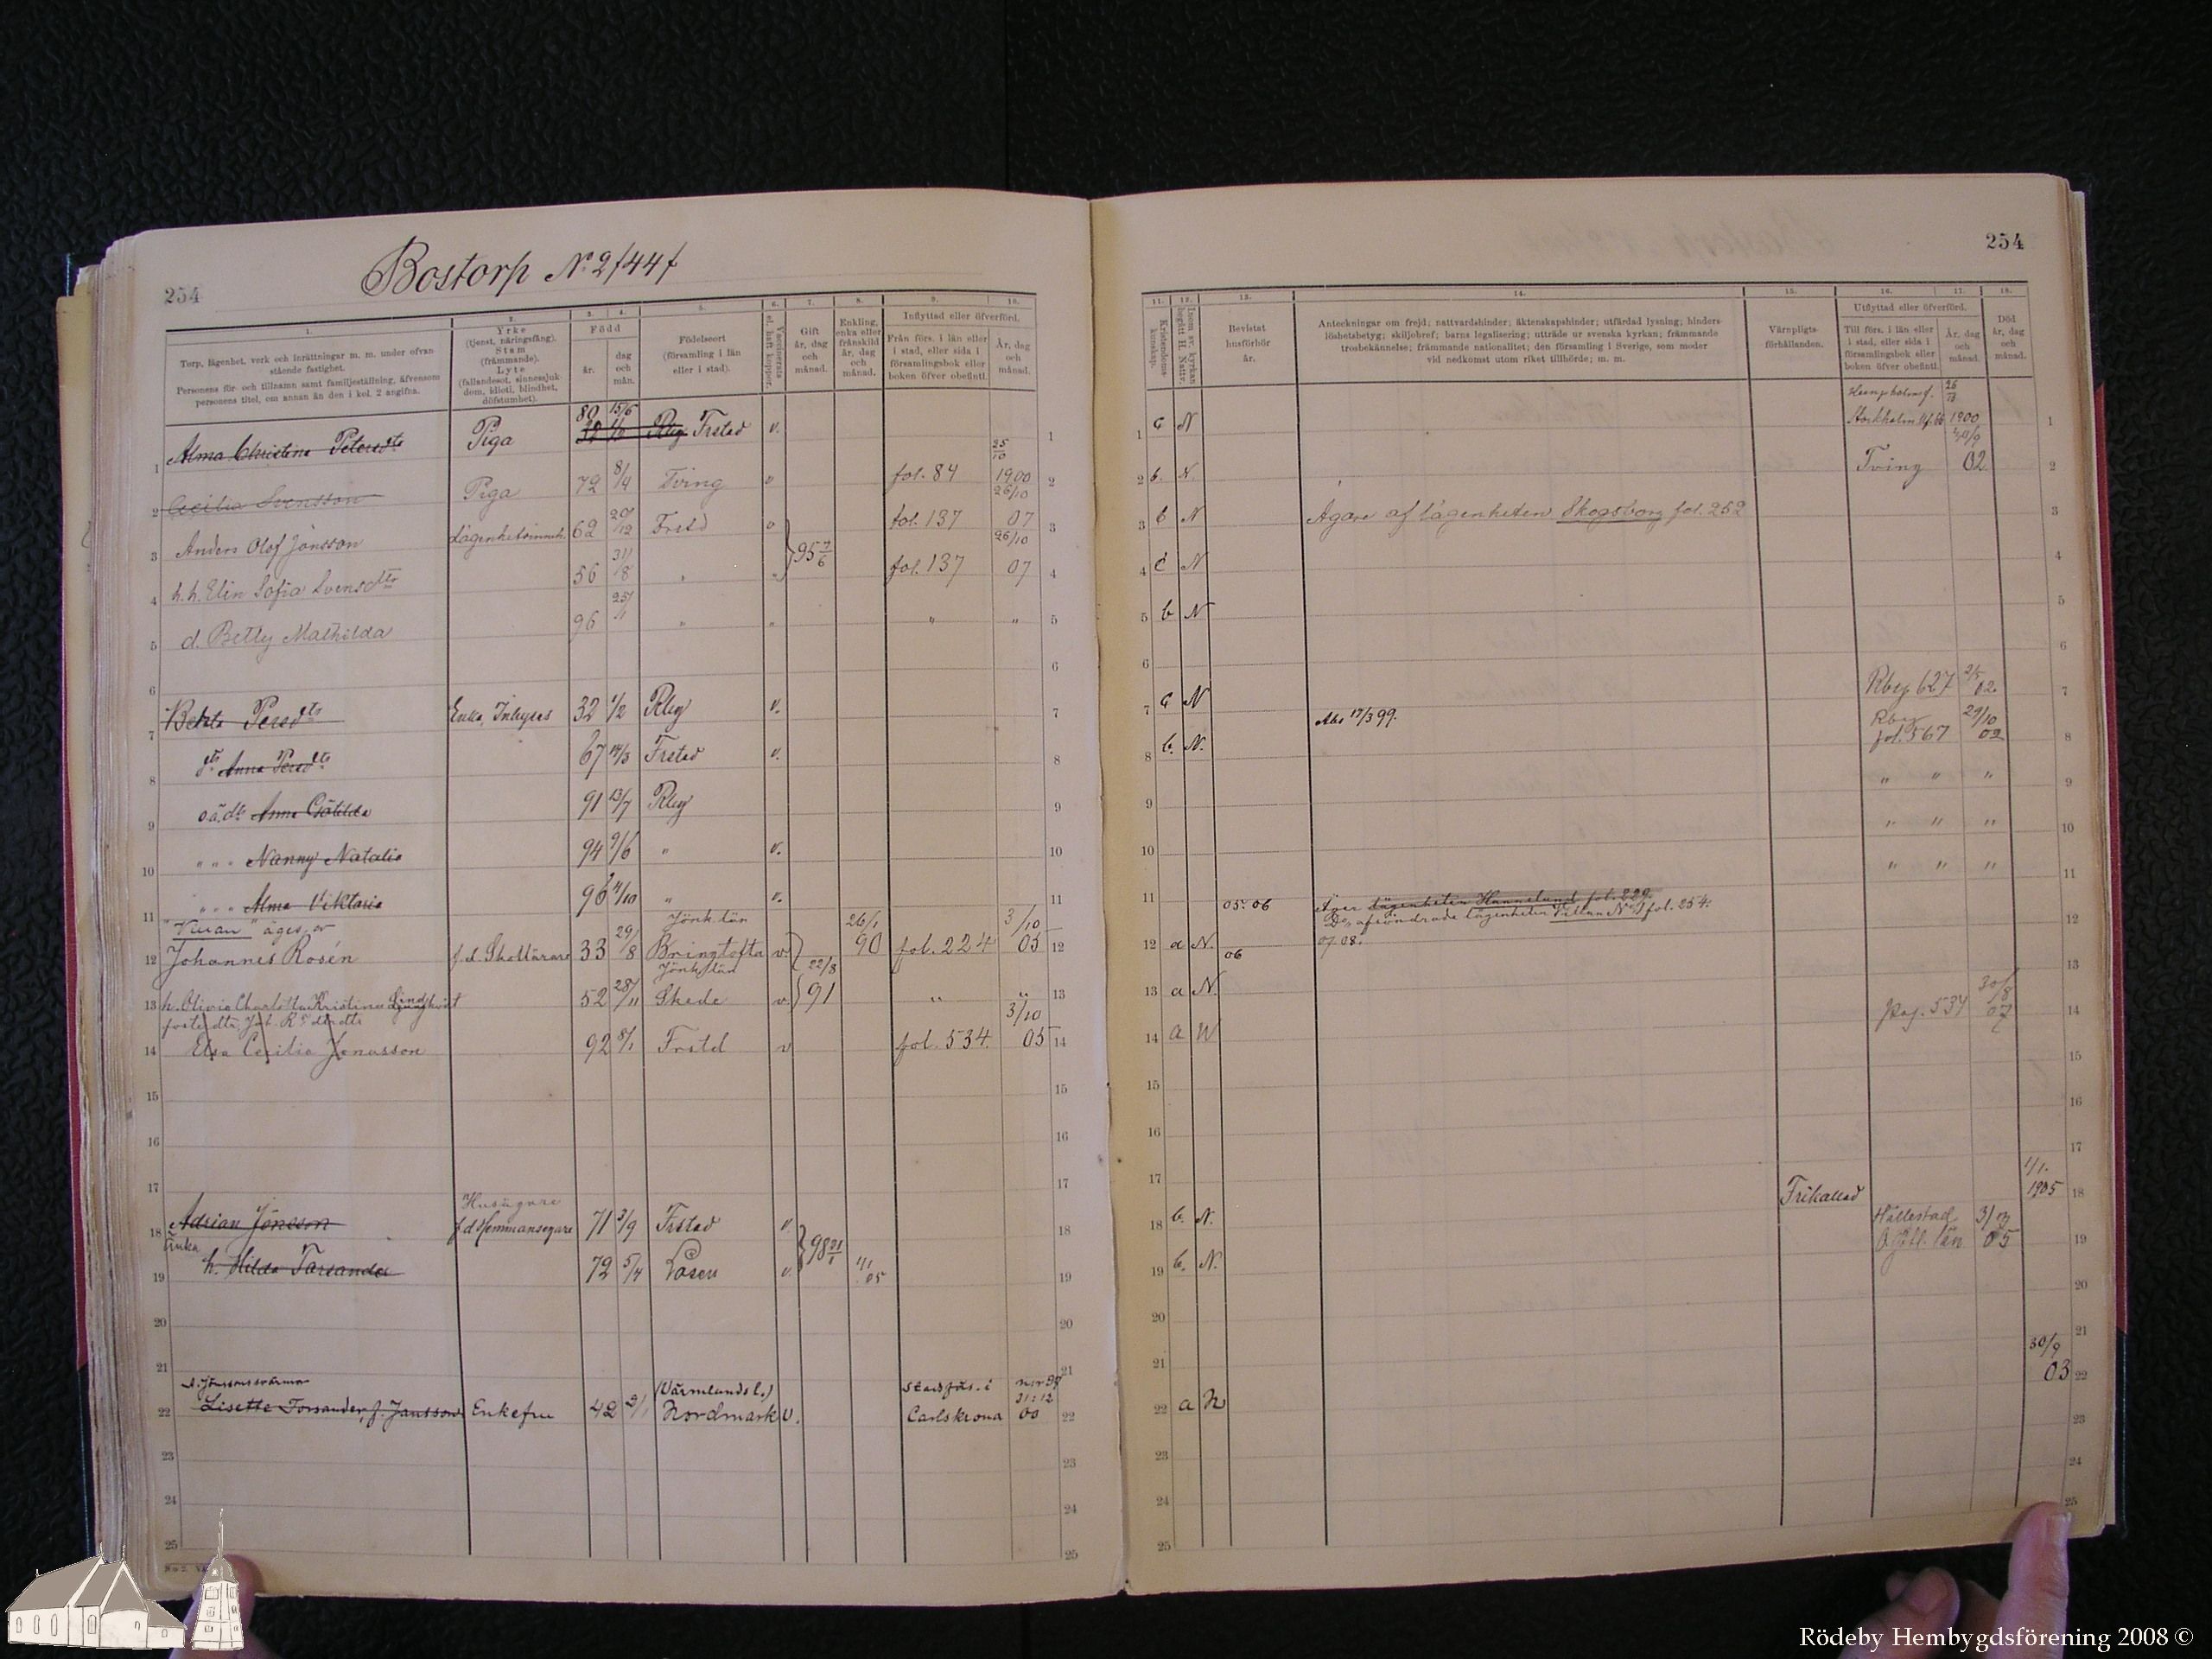 254
Bostorp No 2/44f
1. 2. 3. 4. 5. 6. 7. 8. 9. 10.
Torp, lägenhet, verk och inrättningar m. m. under ofvan
stående fastighet.
Personens för- och tillnamn samt familjeställning, äfvensom
personens titel, om annan än den i kol. 2 angifna.
Yrke
(tjenst, näringsfång).
Stam
(främmande).
Lyte
(fallandesot, sinnessjuk-
dom, idioti, blindhet,
döfstumhet).
Född
år.
dag
och
mån.
Födelseort
(församling i län
eller i stad).
Vaccinerats
el. haft koppor.
Gift
år, dag
och
månad.
Enkling,
enka eller
frånskild
år, dag
och
månad.
Inflyttad eller öfverförd.
Från förs. i län eller
i stad, eller sida i
församlingsbok eller
boken öfver obefintl.
År, dag
och
månad.
1 Alma Christina Petersdtr Piga 80 15/6 Frstad v. 1
2 Cecilia Svensson Piga 72 8/4 Tving v fol. 84 25/10 1900 2
3 Anders Olof Jönsson Lägenhetsinneh. 62 29/12 Frstd v 95 7/6 fol. 137 26/10 07 3
4 h. h. Elin Sofia Svensdtr 56 31/8 " fol. 137 26/10 07 4
5 d. Betty Mathilda 96 25/11 " " " " 5
6 6
7 Persdtr Enka, Inhyses 32 1/2 Rby v. 7
8 dtr Anna Persdtr 67 14/3 Frstad v. 8
9 o.ä.dtr Anna Götilda 91 13/7 Rby 9
10 " " " Nanny Natalia 94 9/6 " v. 10
11 " " " Alma Viktoria 96 4/10 " v. 11
äges av
12 Johannes Rosén f.d. Skollärare 33 29/8 Jönk. län Bringtofta v 26/1 90 fol. 224 3/10 05 12
13 h. Olivia Charlotta Kristina 52 28/11 Jönk. län Skede v 22/8 91 " " 13
fosterdtr, Joh. R:s dtr dtr
14 Elsa Cecilia Jonasson 92 8/1 Frstd v fol. 534. 3/10 05 14
15 15
16 16
17 17
Husägare
18 Adrian Jönsson f d Hemmansegare 71 3/9 Frstad v 18
Enka
19 h. Hilda Torsander 72 5/4 Losen v. 98 1/1 05 19
20 20
21 21
A. Jönssons svärmor
22 Lisette Torsander, f. Jansson Enkefru 42 2/1 (Värmlands l.) Nordmark v. Stadsförs. i Carlskrona 31:12 00 22
23 23
24 24
25 25
254
11. 12. 13. 14. 15. 16. 17. 18.
Kristendoms-
kunskap.
Inom sv. kyrkan
begått H. Nattv.
Bevistat
husförhör
år.
Anteckningar om frejd; nattvardshinder; äktenskapshinder; utfärdad lysning; hinders-
löshetsbetyg; skiljobref; barns legalisering; utträde ur svenska kyrkan; främmande
trosbekännelse; främmande nationalitet; den församling i Sverige, som moder
vid nedkomst utom riket tillhörde; m. m.
Värnpligts-
förhållanden.
Utflyttad eller öfverförd.
Till förs. i län eller
i stad, eller sida i
församlingsbok eller
boken öfver obefintl.
År, dag
och
månad.
Död
år, dag
och
månad.
1 N Stockholm 1900 1
2 b. N. Tving 02 2
3 b N Ägare af lägenheten Skogsborg fol. 252 3
4 N 4
5 b N 5
6 6
7 N Abs 17/3 99. Rby 627 2/5 02. 7
8 b. N. Rby fol. 567 29/10 02 8
9 " " " 9
10 " " " 10
11 " " " 11
05. 06 Äger lägenheten Hannelund fol. 229.
Do afsöndrade lägenheten Villan No 1 fol. 254.
12 a N. 06 07 08. 12
13 a N. 13
14 a N Pag. 534 30/8 07 14
15 15
16 16
17 17
18 b. N. Frikallad 1/1. 1905 18
19 b. N. Hällestad Ö.gtl. län 05 19
20 20
21 21
22 a N 30/9 03 22
23 23
24 24
25 25
Rödeby Hembygdsförening 2008 ©